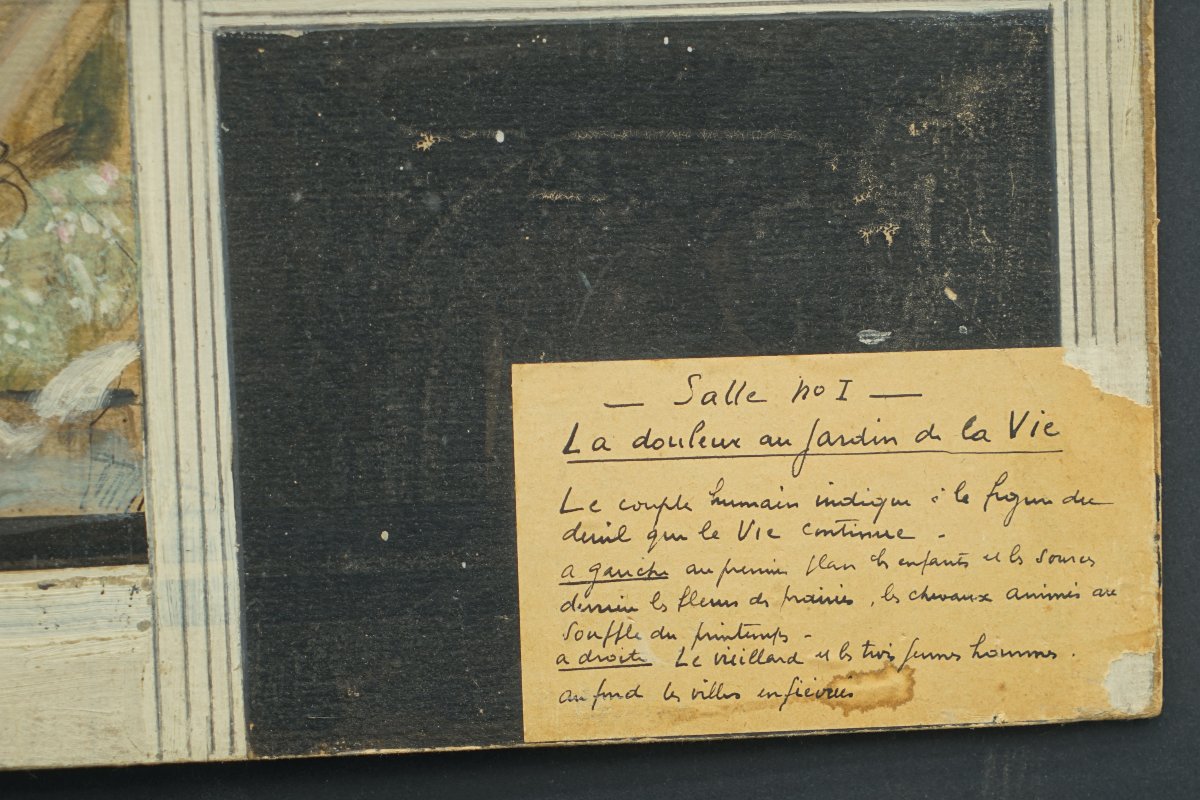 — Salle no I —
La douleur au Jardin de la Vie
Le couple humain indique à la figure du
deuil que la Vie continue -
a gauche au premier plan les enfants et les sources
derrière les fleurs des prairies, les chevaux animés au
souffle du printemps -
a droite Le vieillard et les trois jeunes hommes.
au fond les villes enfiévrées